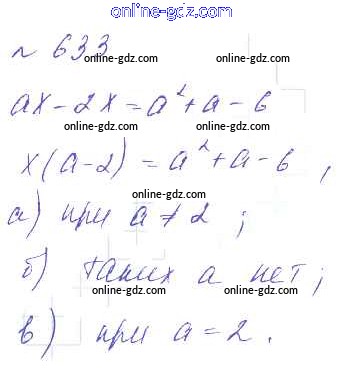 online-gdz.com
№ 633
online-gdz.com
ax - 2x = a² + a - 6
online-gdz.com online-gdz.com
x(a-2) = a² + a - 6,
online-gdz.com
а) при a ≠ 2;
online-gdz.com online-gdz.com
б) таких a нет;
online-gdz.com
в) при a = 2.
online-gdz.com online-gdz.com